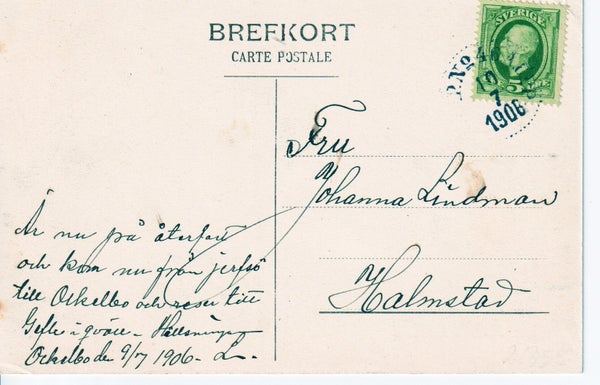 BREFKORT
CARTE POSTALE
SVERIGE
5
PKXP. No 4
10
7
1906
Fru
Johanna Lindman
Halmstad
Är nu på återfärd
och kom nu från jerfsö
till Ockelbo och reser till
Gefle i qväll - Hälsningar
Ockelbo den 9/7 1906 - L.